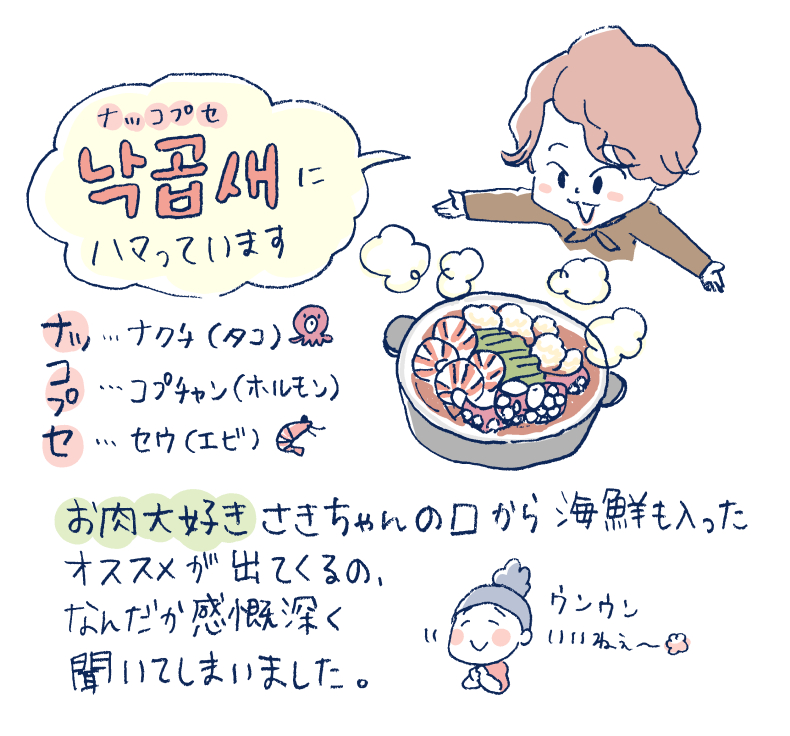 ナッコプセ
낙곱새に
ハマっています
ナッ…ナクチ(タコ)
コプ…コプチャン(ホルモン)
セ…セウ(エビ)
お肉大好きさきちゃんの口から海鮮も入った
オススメが出てくるの、
なんだか感慨深く
聞いてしまいました。
ウンウン
いいねぇ〜